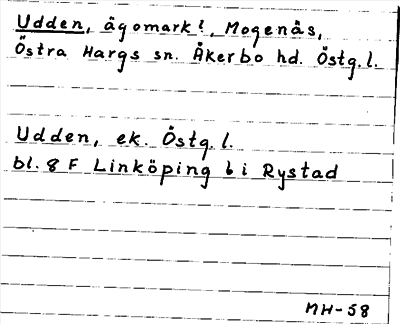 Udden, ägomark?, Mogenås,
Östra Hargs sn. Åkerbo hd. Östg.l.
Udden, ek. Östg.l.
bl. 8 F Linköping b i Rystad
MH-58